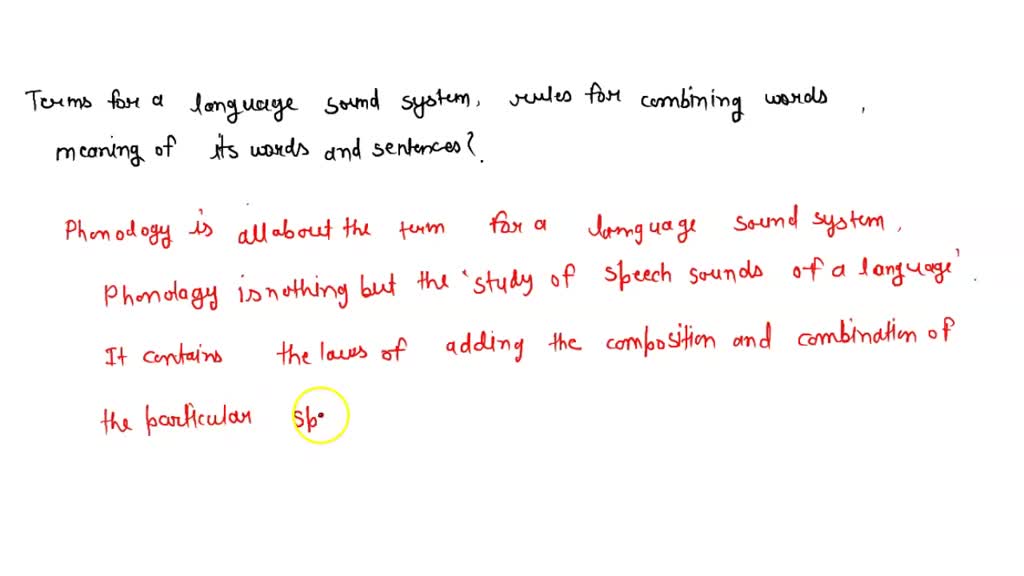 Terms for a language sound system, rules for combining words,
meaning of its words and sentences?.
Phonology is all about the term for a language sound system,
Phonology is nothing but the 'study of speech sounds of a language'.
It contains the laws of adding the composition and combination of
the particular sp